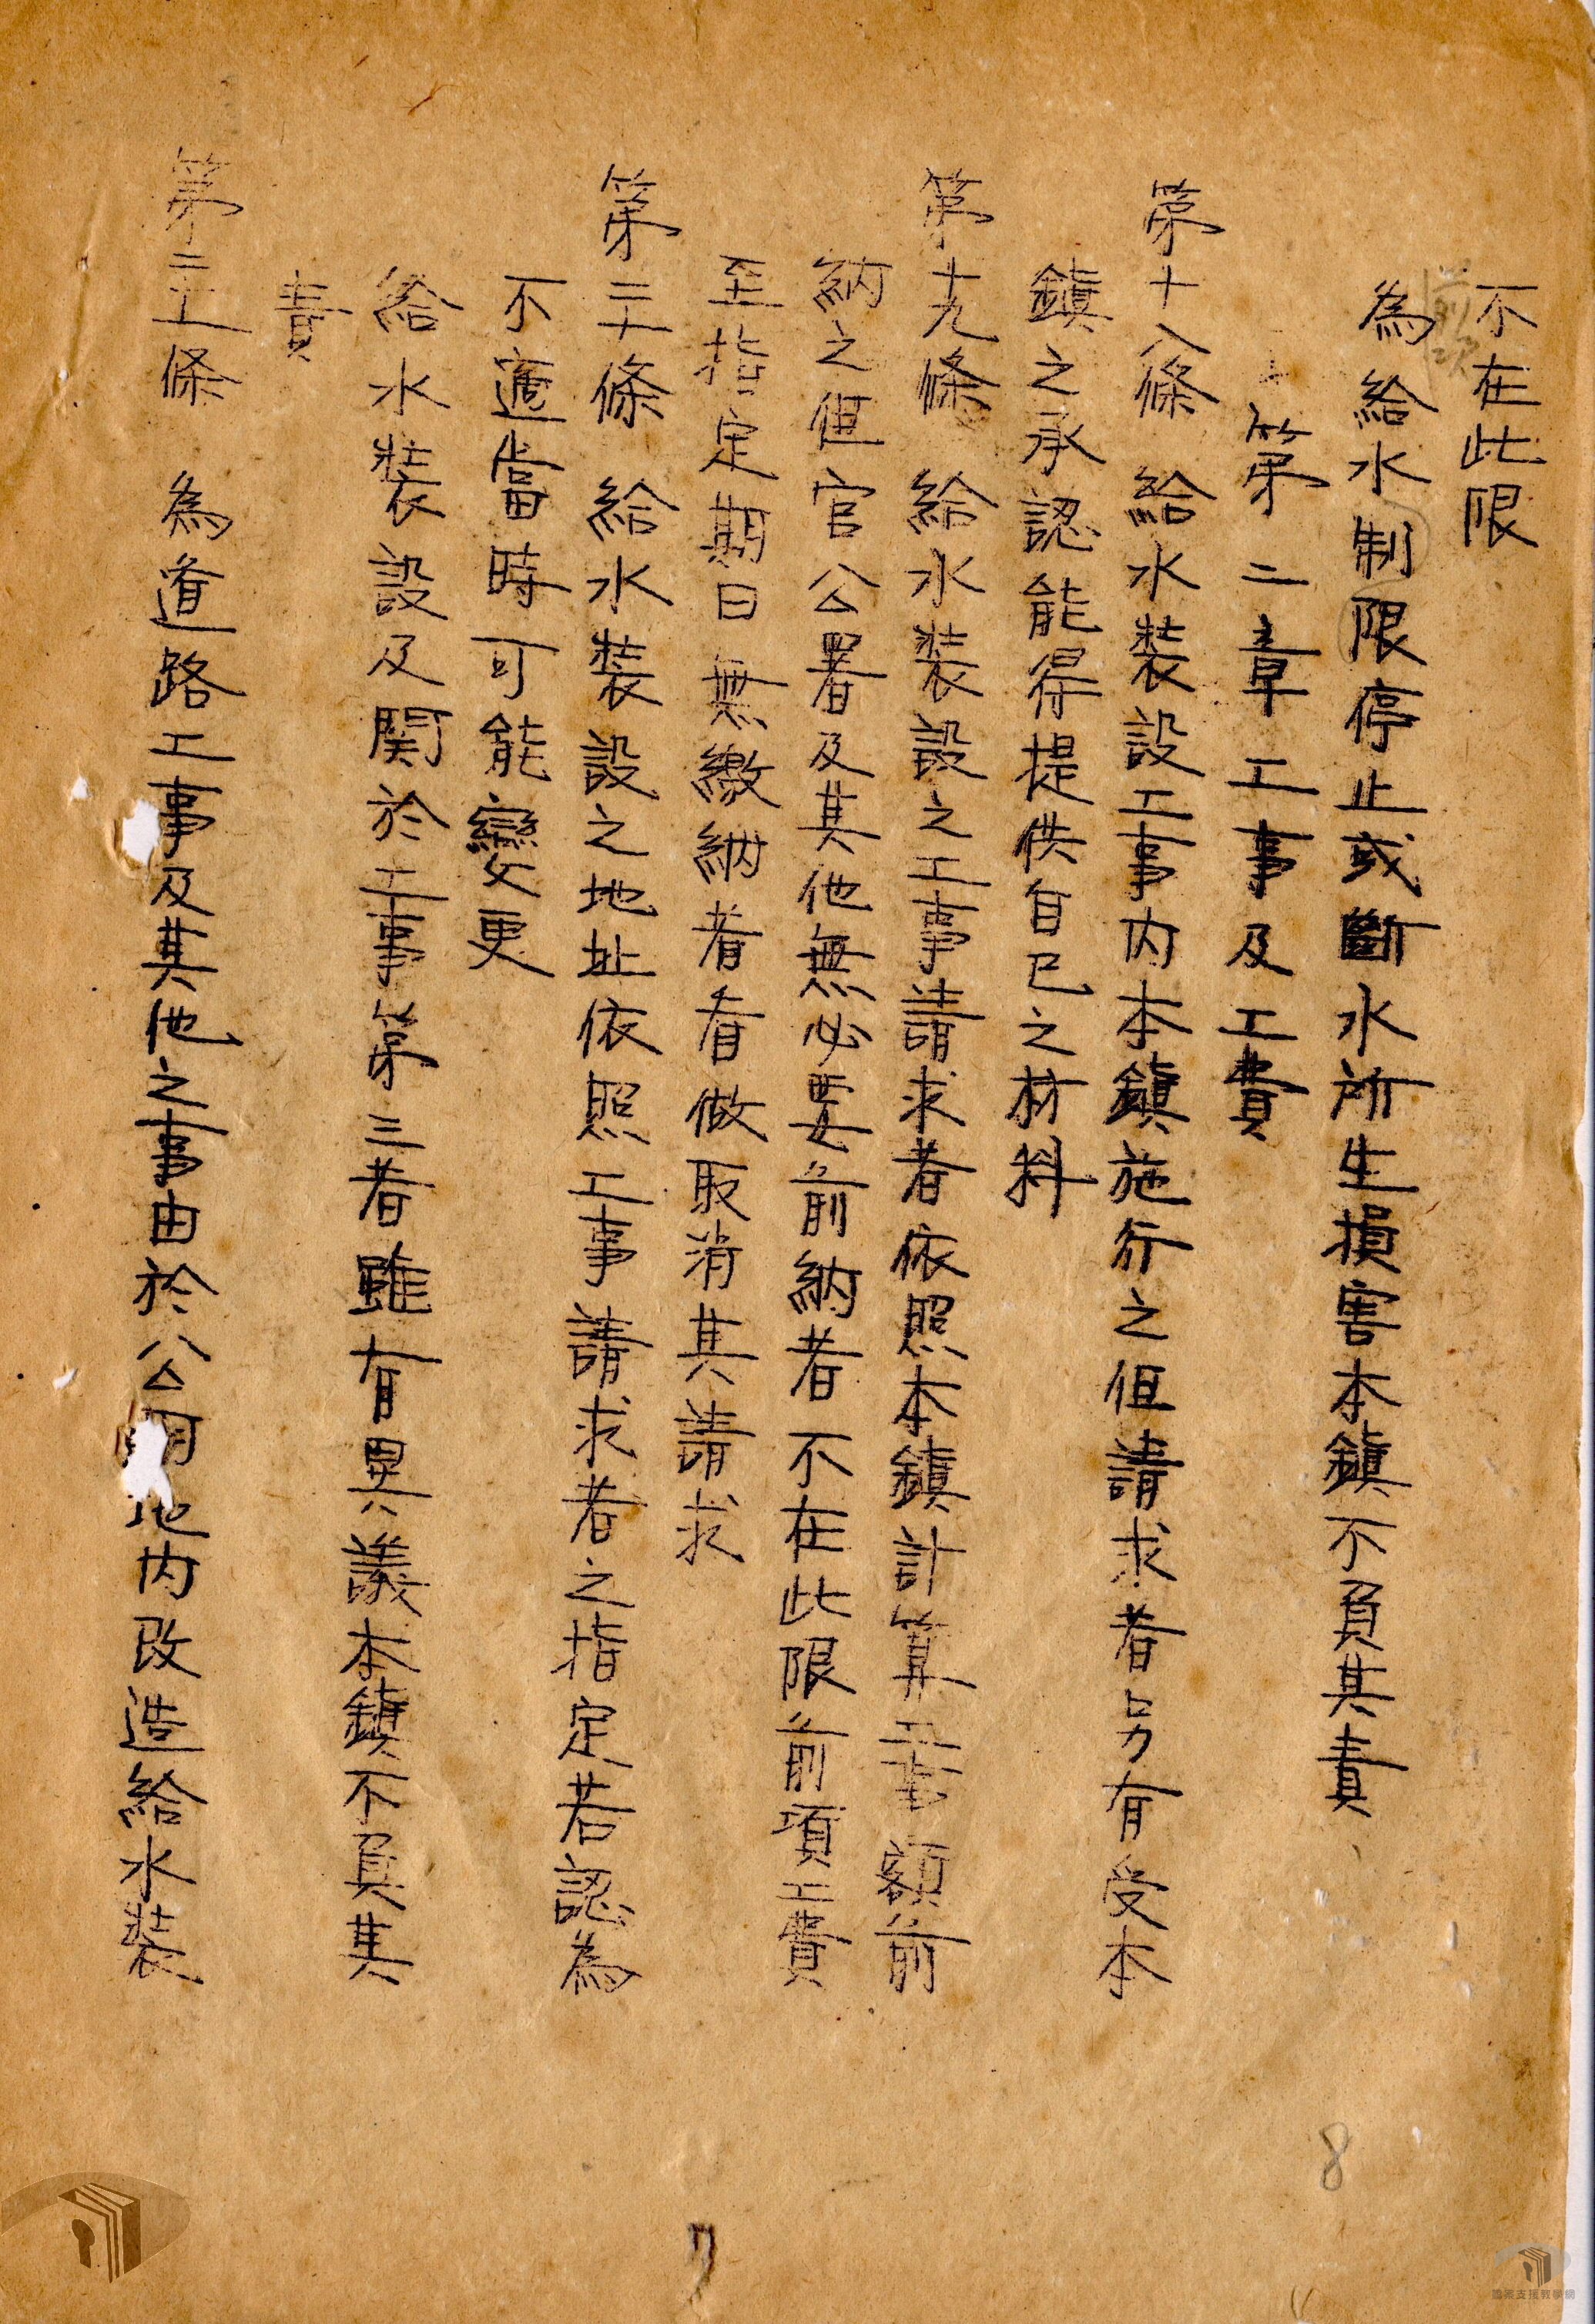 不在此限
前項
為給水制限停止或斷水所生損害本鎮不負其責
第二章 工事及工費
第十八條 給水裝設工事內本鎮施行之但請求者另有受本
鎮之承認能得提供自己之材料
第十九條 給水裝設之工事請求者依照本鎮計算工費額前
納之但官公署及其他無必要前納者不在此限前項工費
至指定期日無繳納者看做取消其請求
第二十條 給水裝設之地址依照工事請求者之指定若認為
不適當時可能變更
給水裝設及関於工事第三者雖有異議本鎮不負其
責
第二十一條 為道路工事及其他之事由於公用地內改造給水裝
8
7
國家支援教學網